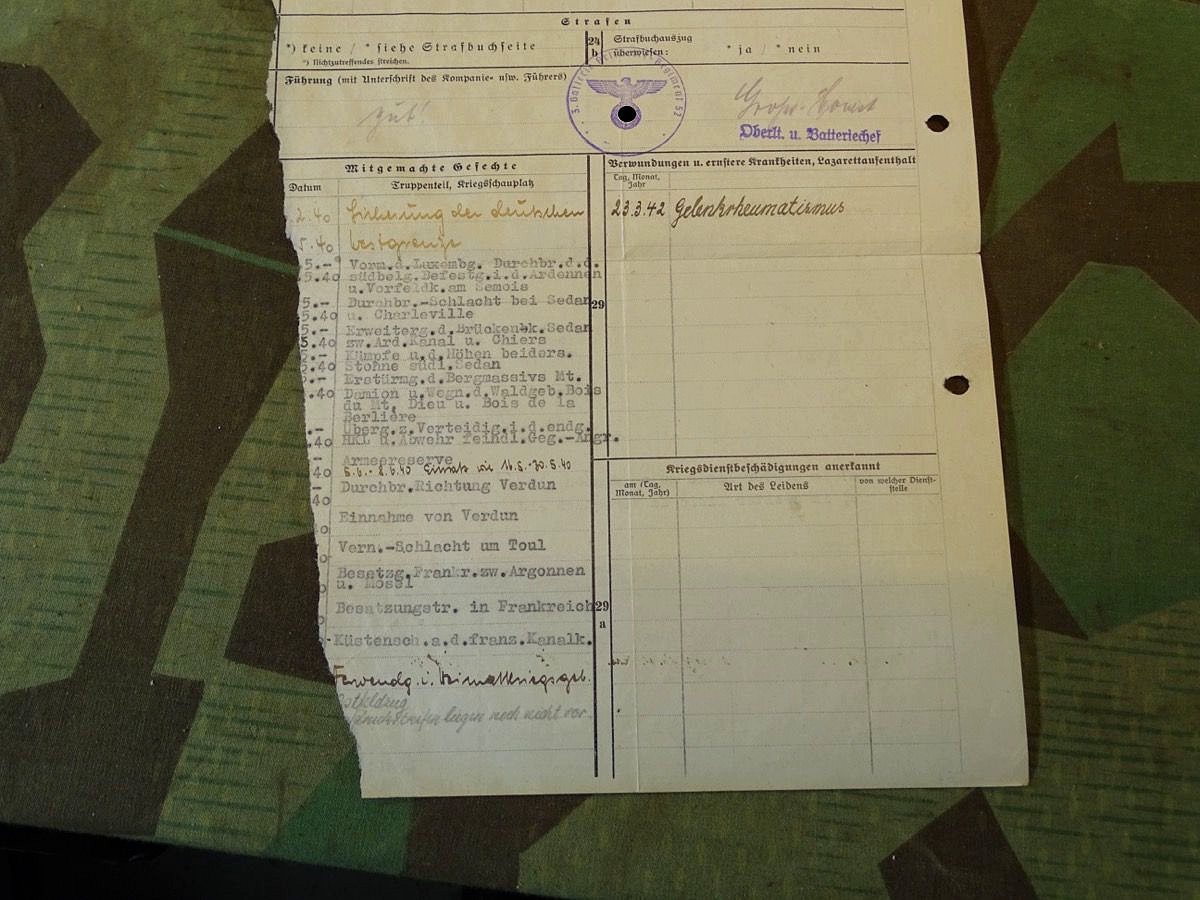 Strafen
*) keine / * siehe Strafbuchseite
*) Nichtzutreffendes streichen.
24 b
Strafbuchauszug
überwiesen:
* ja / * nein
Führung (mit Unterschrift des Kompanie- usw. Führers)
gut!
Oberlt. u. Batteriechef
Mitgemachte Gefechte
Datum
Truppenteil, Kriegsschauplatz
2.40 Sicherung der deutschen
5.40 Westgrenze
5.- Vorm.d.Luxembg. Durchbr.d.d.
5.40 südbelg.Befestg.i.d.Ardennen
u.Vorfeldk.am Semois
5.- Durchbr.-Schlacht bei Sedan
5.40 u. Charleville
5.- Erweiterg.d.Brückenbk.Sedan
5.40 sw.Ard.Kanal u. Chiers
5.- Kämpfe u.d.Höhen beiders.
5.40 Stonne südl.Sedan
.- Erstürmg.d.Bergmassivs Mt.
.40 Damion u.Wegn.d.Waldgeb.Bois
du Mt. Dieu u. Bois de la
Berlière
.- Überg.z.Verteidig.i.d.endg.
.40 HKL u.Abwehr feindl.Geg.-Angr.
- Armeereserve
40 5.6.-8.6.40 Einsatz wie 16.5.-30.5.40
- Durchbr.Richtung Verdun
40
Einnahme von Verdun
o
Vern.-Schlacht um Toul
o
Besetzg.Frankr.zw.Argonnen
u. Mosel
Besatzungstr. in Frankreich
Küstensch.a.d.franz.Kanalk.
Verwendg. i. Heimatkriegsgeb.
Ostfeldzug
liegen noch nicht vor.
29
Verwundungen u. ernstere Krankheiten, Lazarettaufenthalt
Tag, Monat,
Jahr
23.3.42 Gelenkrheumatismus
29 a
Kriegsdienstbeschädigungen anerkannt
am (Tag,
Monat, Jahr)
Art des Leidens
von welcher Dienst-
stelle